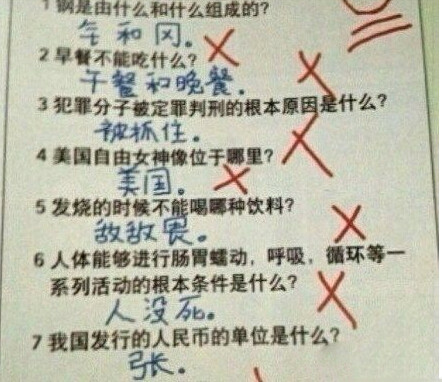 1 钢是由什么和什么组成的?
钅和冈。
2 早餐不能吃什么?
午餐和晚餐。
3 犯罪分子被定罪判刑的根本原因是什么?
被抓住。
4 美国自由女神像位于哪里?
美国。
5 发烧的时候不能喝哪种饮料?
敌敌畏。
6 人体能够进行肠胃蠕动，呼吸，循环等一
系列活动的根本条件是什么?
人没死。
7 我国发行的人民币的单位是什么?
张。